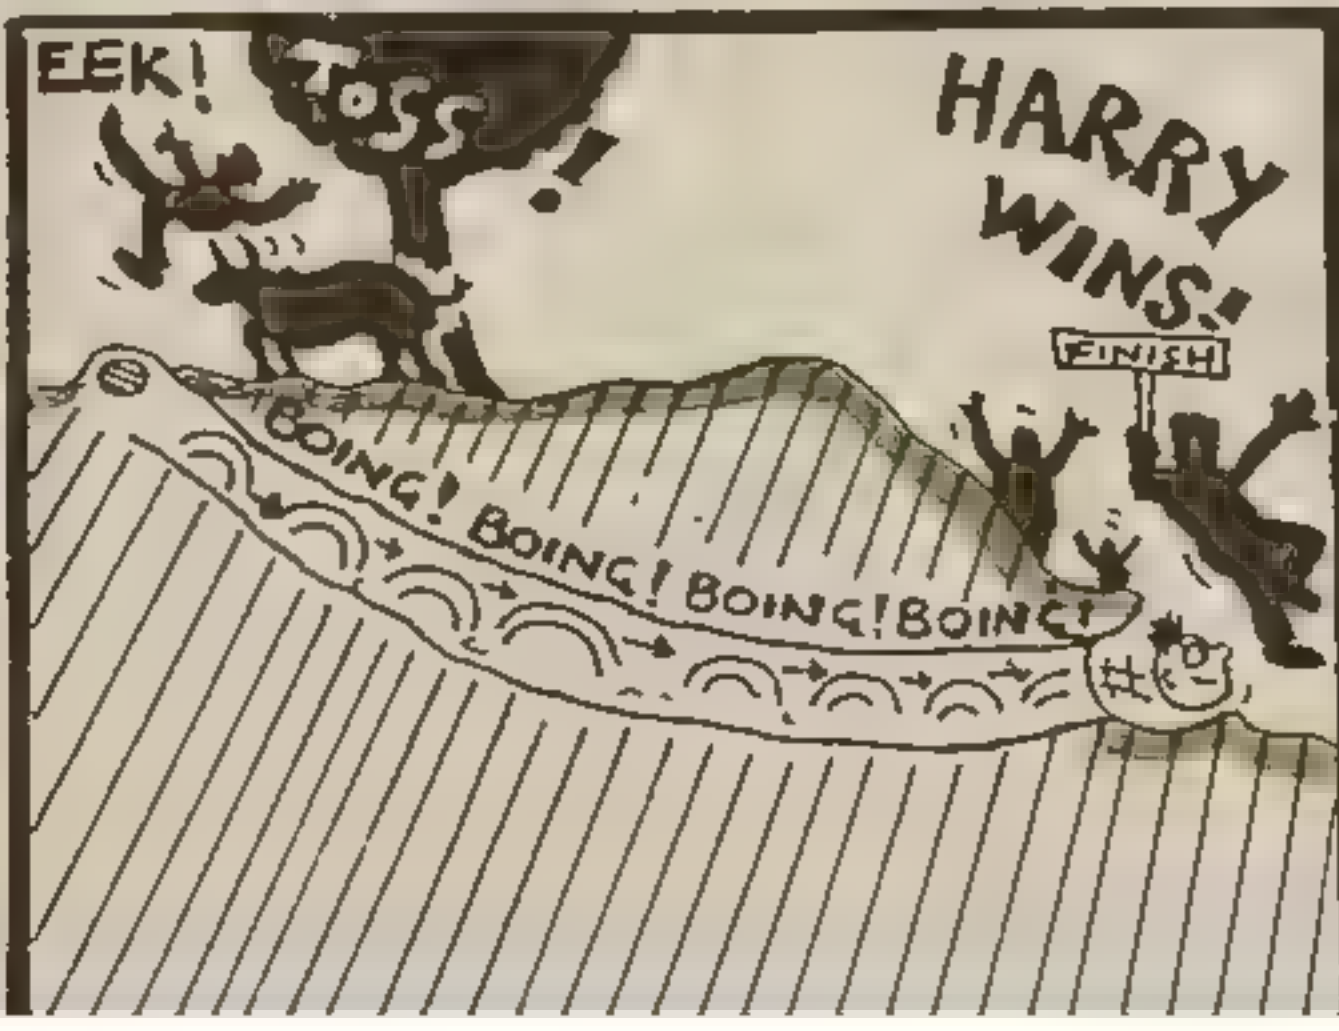 EEK!
TOSS
!
HARRY
WINS!
FINISH
BOING! BOING! BOING! BOING!